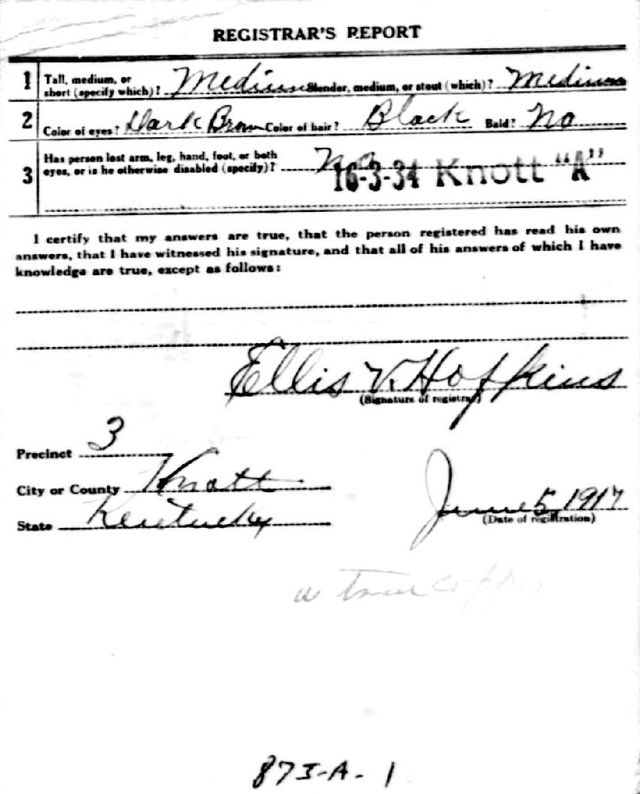 REGISTRAR'S REPORT
1 Tall, medium, or short (specify which)? Medium Slender, medium, or stout (which)? Medium
2 Color of eyes? Dark Brown Color of hair? Black Bald? No
3 Has person lost arm, leg, hand, foot, or both
eyes, or is he otherwise disabled (specify)? No
16-3-34 Knott "A"
I certify that my answers are true, that the person registered has read his own
answers, that I have witnessed his signature, and that all of his answers of which I have
knowledge are true, except as follows:
Ellis V. Hopkins
(Signature of registrar)
Precinct 3
City or County Knott
State Kentucky
June 5, 1917
(Date of registration)
a true copy
873-A-1